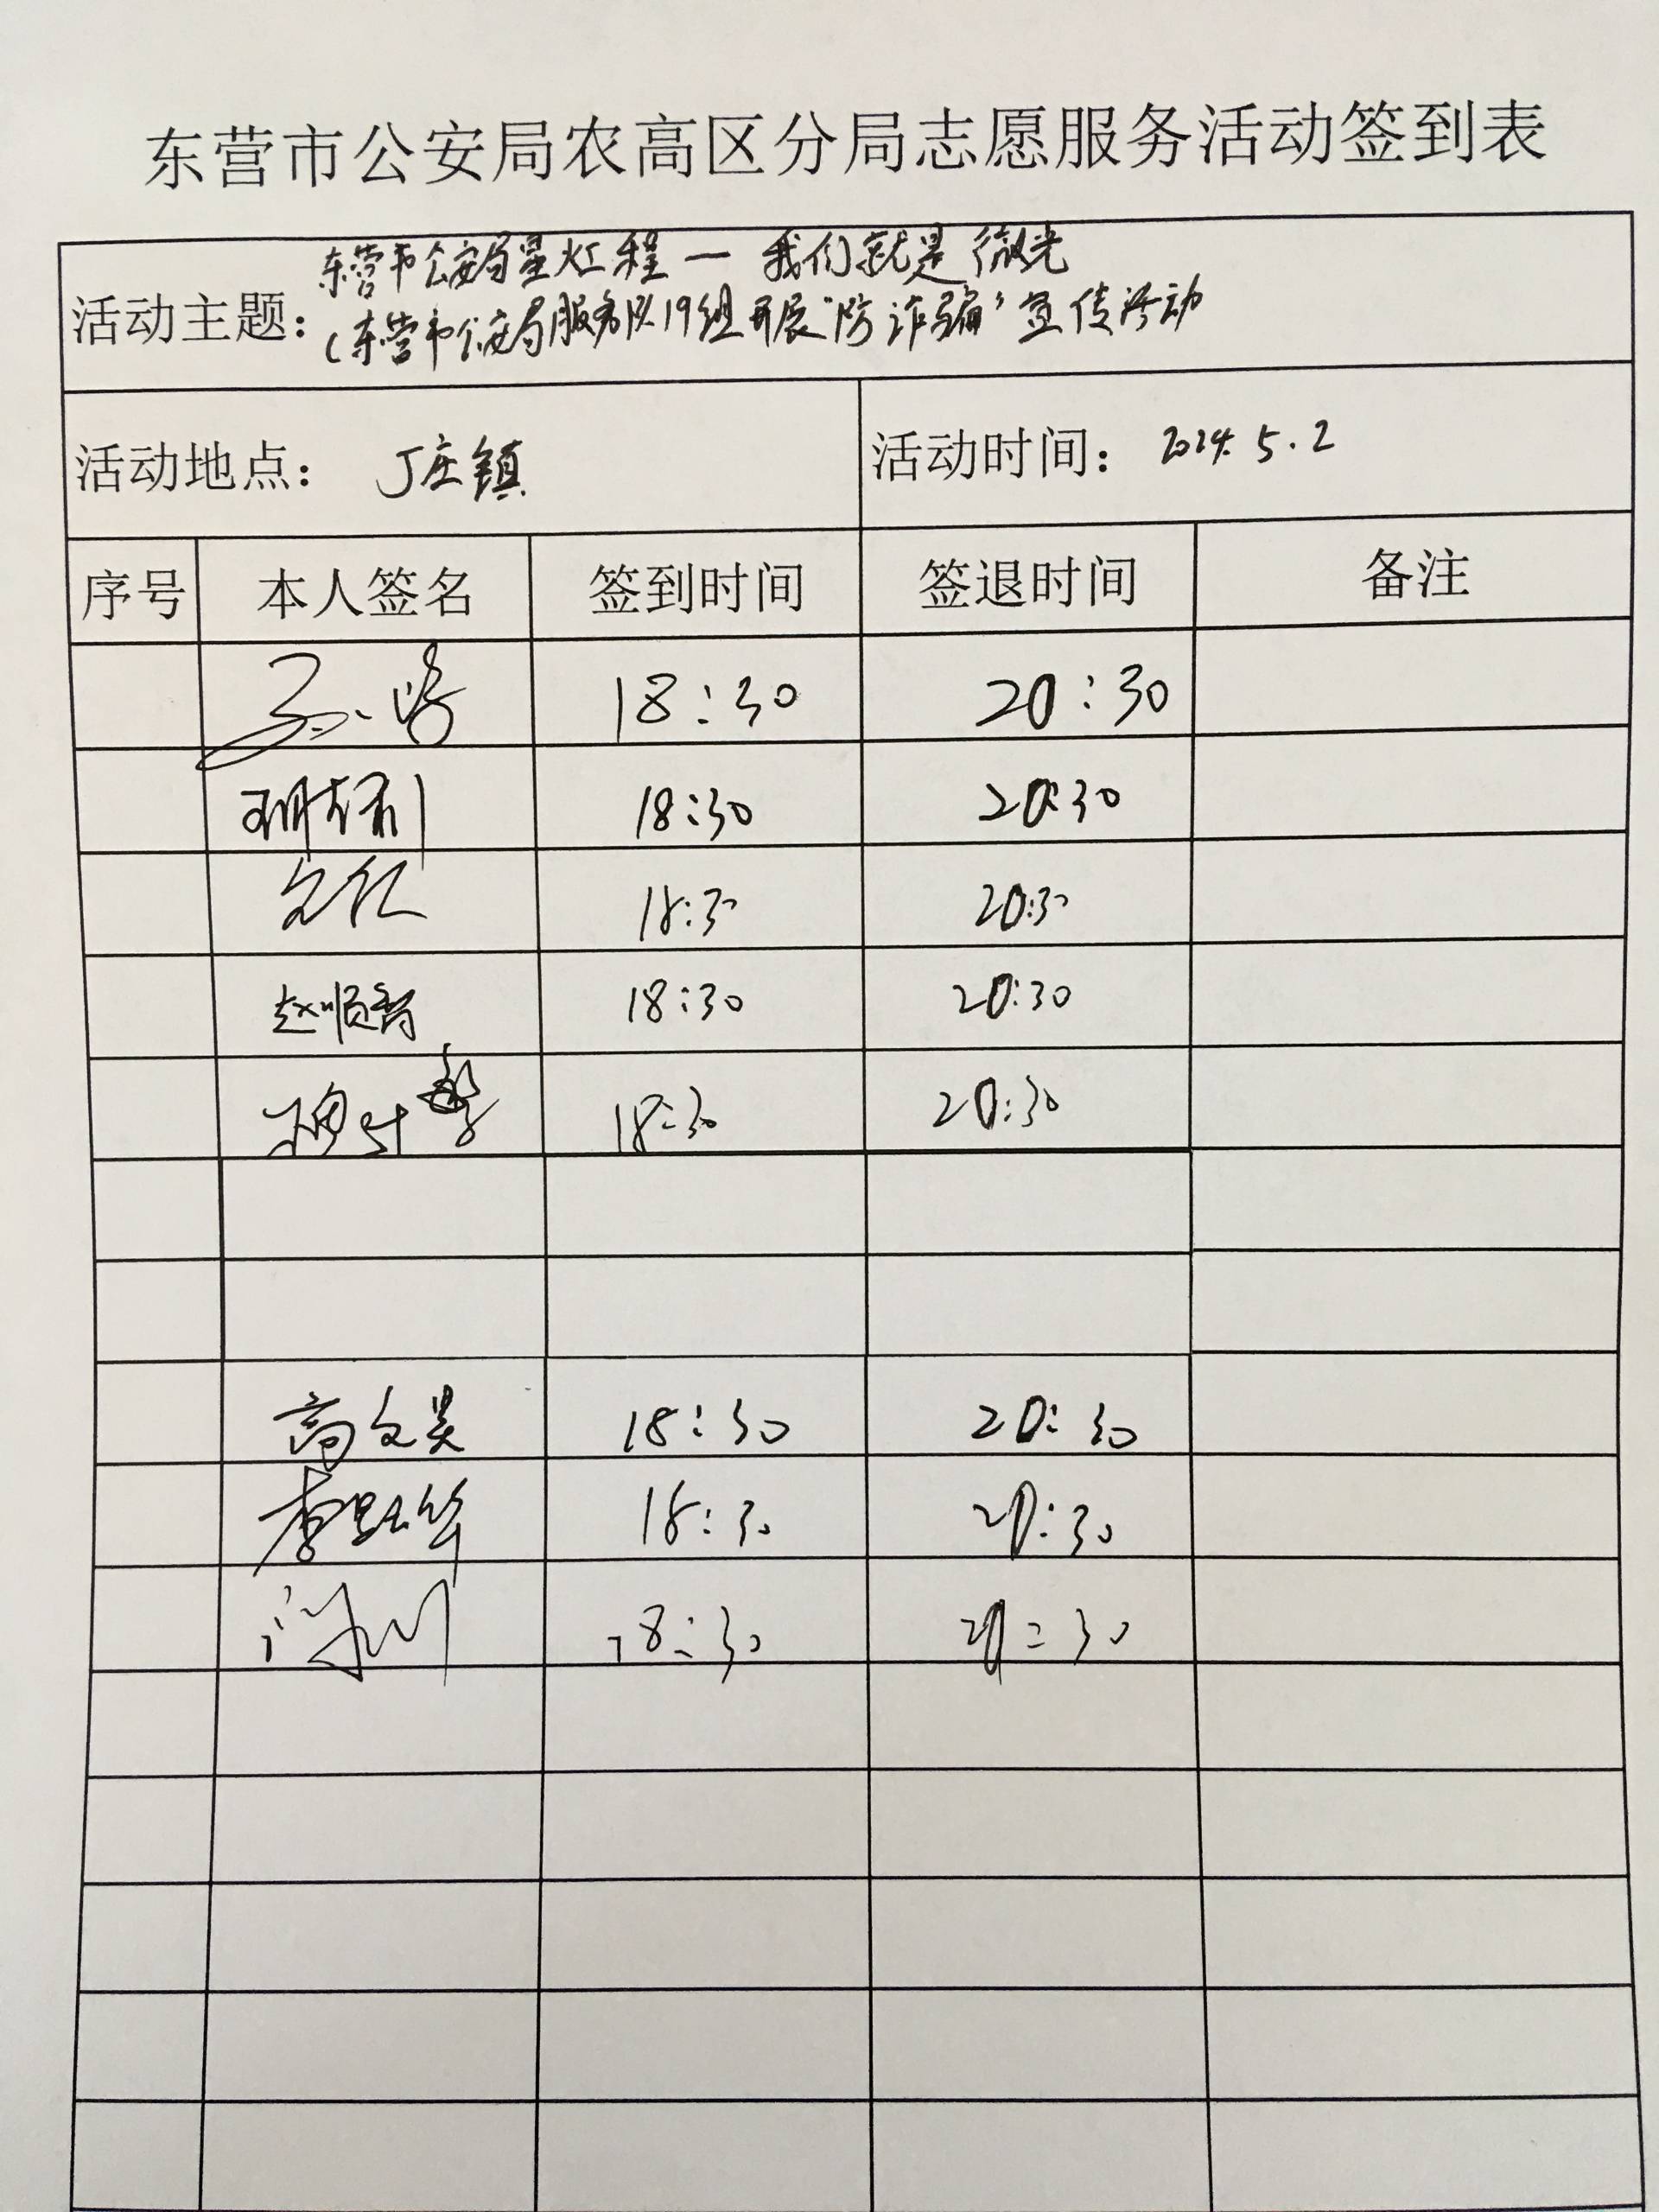 东营市公安局农高区分局志愿服务活动签到表
活动主题: 东营市公安局星火工程一我们就是微光
(东营市公安局服务队19组开展"防诈骗"宣传活动
活动地点: 丁庄镇 活动时间: 2024.5.2
序号 本人签名 签到时间 签退时间 备注
18:30 20:30
18:30 20:30
18:30 20:30
赵顺 18:30 20:30
18:30 20:30
高文昊 18:30 20:30
李 华 18:30 20:30
18:30 20:30